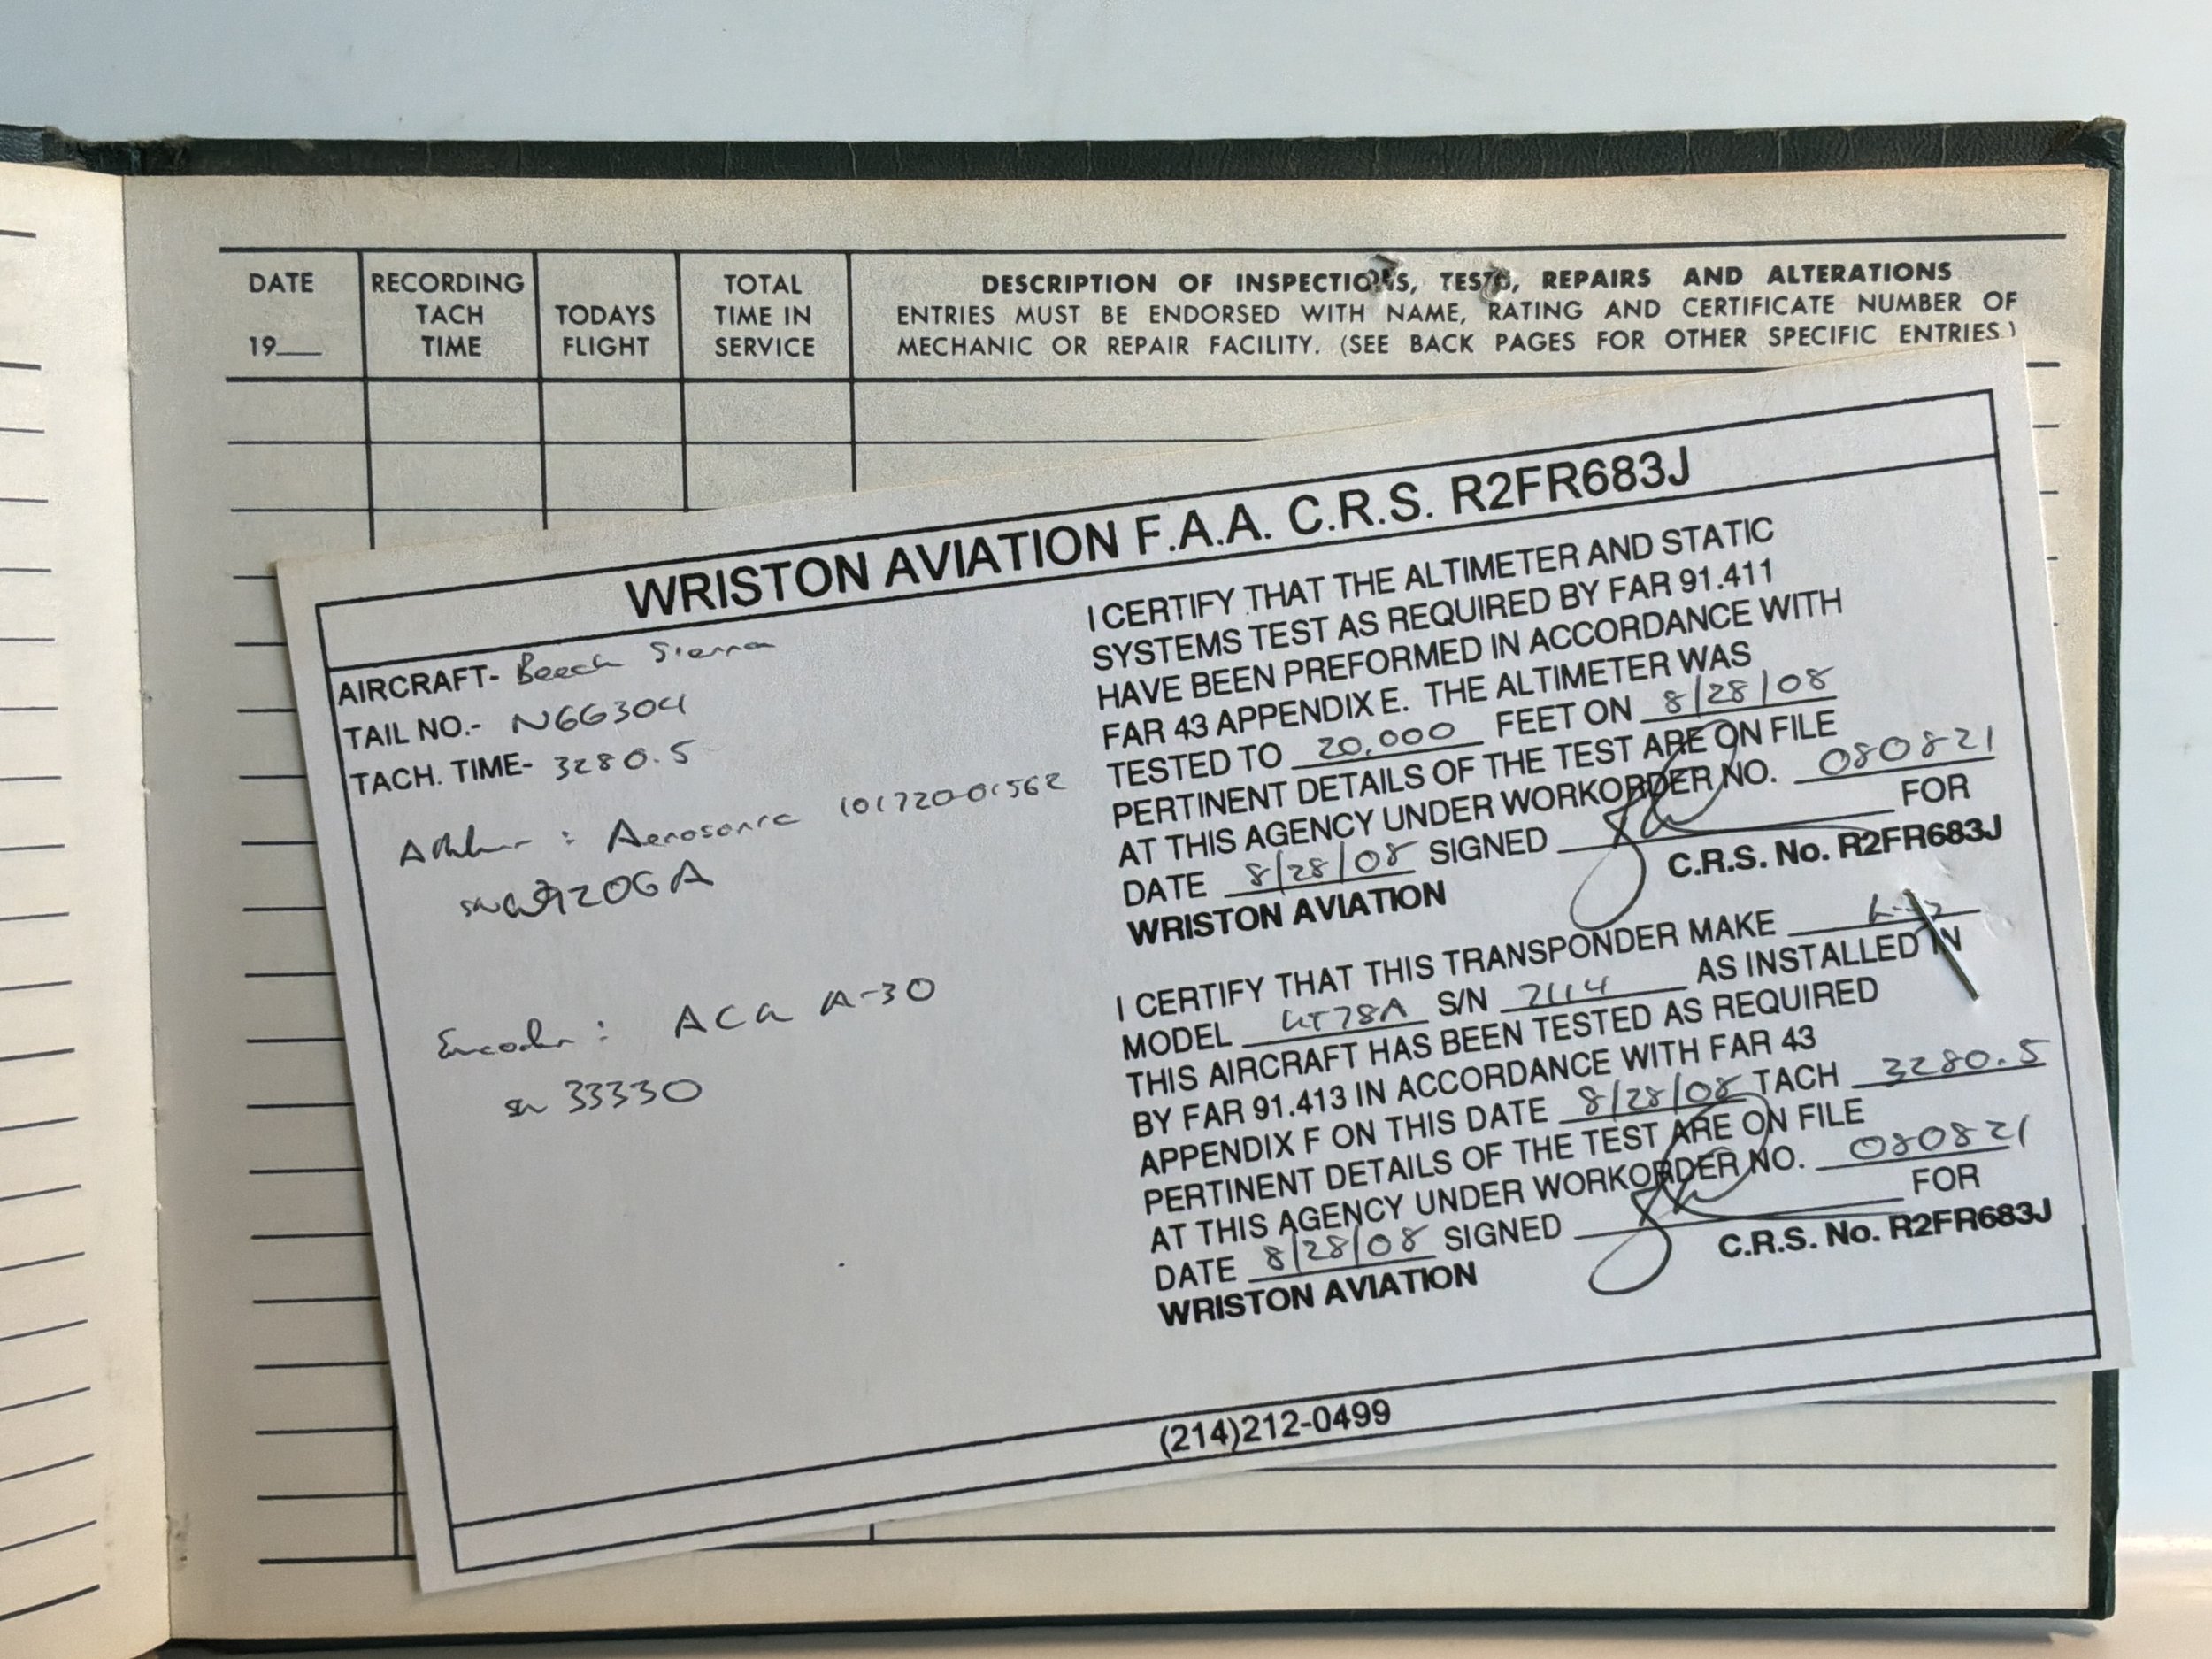 DATE
19
RECORDING
TACH
TIME
TODAYS
FLIGHT
TOTAL
TIME IN
SERVICE
DESCRIPTION OF INSPECTIONS, TESTS, REPAIRS AND ALTERATIONS
ENTRIES MUST BE ENDORSED WITH NAME, RATING AND CERTIFICATE NUMBER OF
MECHANIC OR REPAIR FACILITY. (SEE BACK PAGES FOR OTHER SPECIFIC ENTRIES.)
WRISTON AVIATION F.A.A. C.R.S. R2FR683J
AIRCRAFT- Beech Sierra
TAIL NO.- N66304
TACH. TIME- 3280.5
: Aerosonic 101720-01562
Encoder: A-30
sn 33330
I CERTIFY THAT THE ALTIMETER AND STATIC
SYSTEMS TEST AS REQUIRED BY FAR 91.411
HAVE BEEN PREFORMED IN ACCORDANCE WITH
FAR 43 APPENDIX E. THE ALTIMETER WAS
TESTED TO 20,000 FEET ON 8/28/08
PERTINENT DETAILS OF THE TEST ARE ON FILE
AT THIS AGENCY UNDER WORKORDER NO. 080821
DATE 8/28/08 SIGNED FOR
WRISTON AVIATION C.R.S. No. R2FR683J
I CERTIFY THAT THIS TRANSPONDER MAKE
MODEL KT78A S/N 7114 AS INSTALLED IN
THIS AIRCRAFT HAS BEEN TESTED AS REQUIRED
BY FAR 91.413 IN ACCORDANCE WITH FAR 43
APPENDIX F ON THIS DATE 8/28/08 TACH 3280.5
PERTINENT DETAILS OF THE TEST ARE ON FILE
AT THIS AGENCY UNDER WORKORDER NO. 080821
DATE 8/28/08 SIGNED FOR
WRISTON AVIATION C.R.S. No. R2FR683J
(214)212-0499